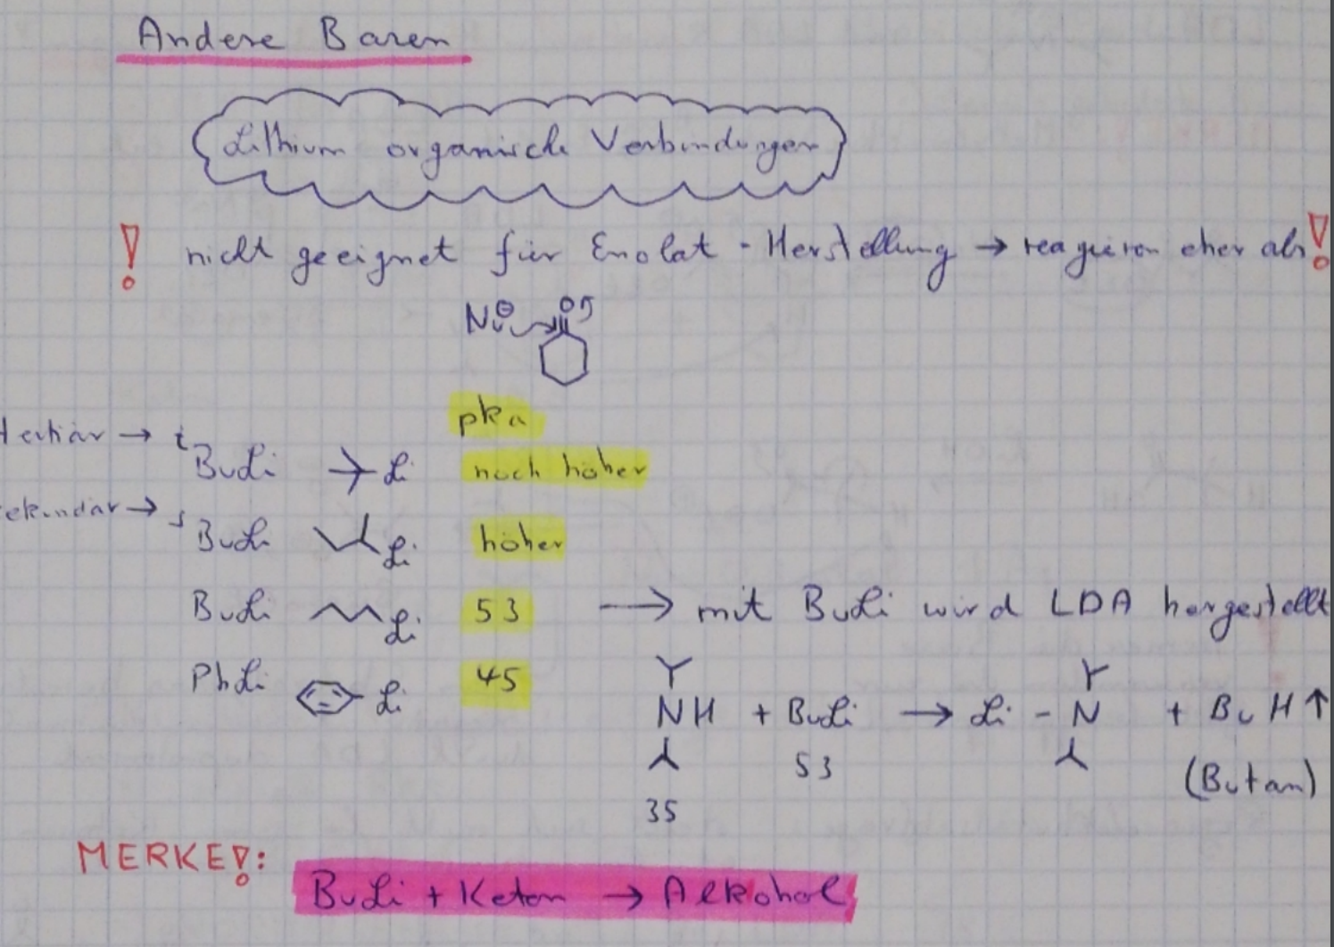 Andere Basen
Lithium organische Verbindungen
! nicht geeignet für Enolat-Herstellung → reagieren eher als !
Nu⊖ O
tertiär → pka
tBuLi Li noch höher
sekundär →
sBuLi Li höher
BuLi Li 53 → mit BuLi wird LDA hergestellt
PhLi Li 45
NH + BuLi → Li - N + BuH ↑
53 (Butan)
35
MERKE!: BuLi + Keton → Alkohol